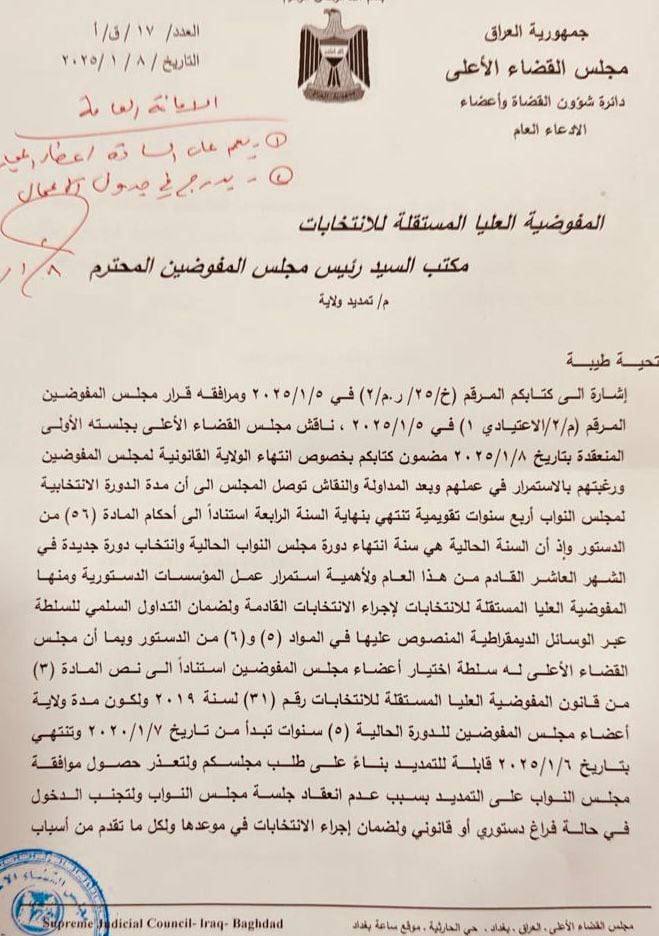 جمهورية العراق
مجلس القضاء الأعلى
دائرة شؤون القضاة وأعضاء
الادعاء العام
العدد/ ١٧ /ق/أ
التاريخ/ ٨ /٢٠٢٥/١
الامانة العامة
١- يعمم على السادة اعضاء
٢- يدرج في جدول الاعمال
المفوضية العليا المستقلة للانتخابات
مكتب السيد رئيس مجلس المفوضين المحترم
م/ تمديد ولاية
تحيـة طيبـة
إشارة الى كتابكم المرقم (خ/٢٥/ ر.م/٢) في ٢٠٢٥/١/٥ ومرافقه قرار مجلس المفوضين
المرقم (م/٢/الاعتيادي ١) في ٢٠٢٥/١/٥ ، ناقش مجلس القضاء الأعلى بجلسته الأولى
المنعقدة بتاريخ ٢٠٢٥/١/٨ مضمون كتابكم بخصوص انتهاء الولاية القانونية لمجلس المفوضين
ورغبتهم بالاستمرار في عملهم وبعد المداولة والنقاش توصل المجلس الى أن مدة الدورة الانتخابية
لمجلس النواب أربع سنوات تقويمية تنتهي بنهاية السنة الرابعة استناداً الى أحكام المادة (٥٦) من
الدستور وإذ أن السنة الحالية هي سنة انتهاء دورة مجلس النواب الحالية وانتخاب دورة جديدة في
الشهر العاشر القادم من هذا العام ولأهمية استمرار عمل المؤسسات الدستورية ومنها
المفوضية العليا المستقلة للانتخابات لإجراء الانتخابات القادمة ولضمان التداول السلمي للسلطة
عبر الوسائل الديمقراطية المنصوص عليها في المواد (٥) و(٦) من الدستور وبما أن مجلس
القضاء الأعلى له سلطة اختيار أعضاء مجلس المفوضين استناداً الى نص المادة (٣)
من قانون المفوضية العليا المستقلة للانتخابات رقم (٣١) لسنة ٢٠١٩ ولكون مدة ولاية
أعضاء مجلس المفوضين للدورة الحالية (٥) سنوات تبدأ من تاريخ ٢٠٢٠/١/٧ وتنتهي
بتاريخ ٢٠٢٥/١/٦ قابلة للتمديد بناءً على طلب مجلسكم ولتعذر حصول موافقة
مجلس النواب على التمديد بسبب عدم انعقاد جلسة مجلس النواب ولتجنب الدخول
في حالة فراغ دستوري أو قانوني ولضمان إجراء الانتخابات في موعدها ولكل ما تقدم من أسباب
Supreme Judicial Council- Iraq- Baghdad
مجلس القضاء الأعلى ، العراق، بغداد، حي الحارثية ، موقع ساعة بغداد